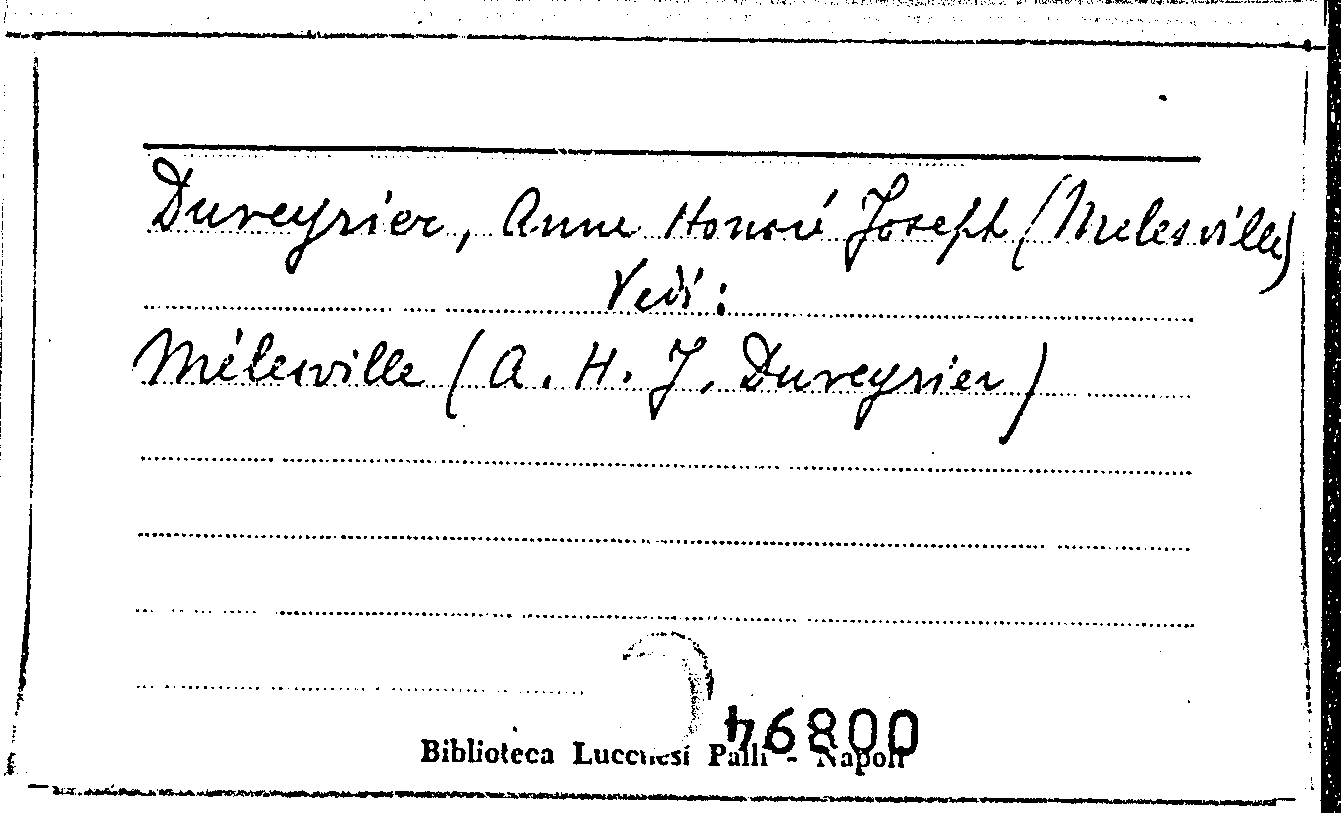 Duveyrier, Anne Honoré Joseph (Melesville)
Vedi:
Mélesville (A. H. J. Duveyrier)
Biblioteca Lucchesi Palli - Napoli